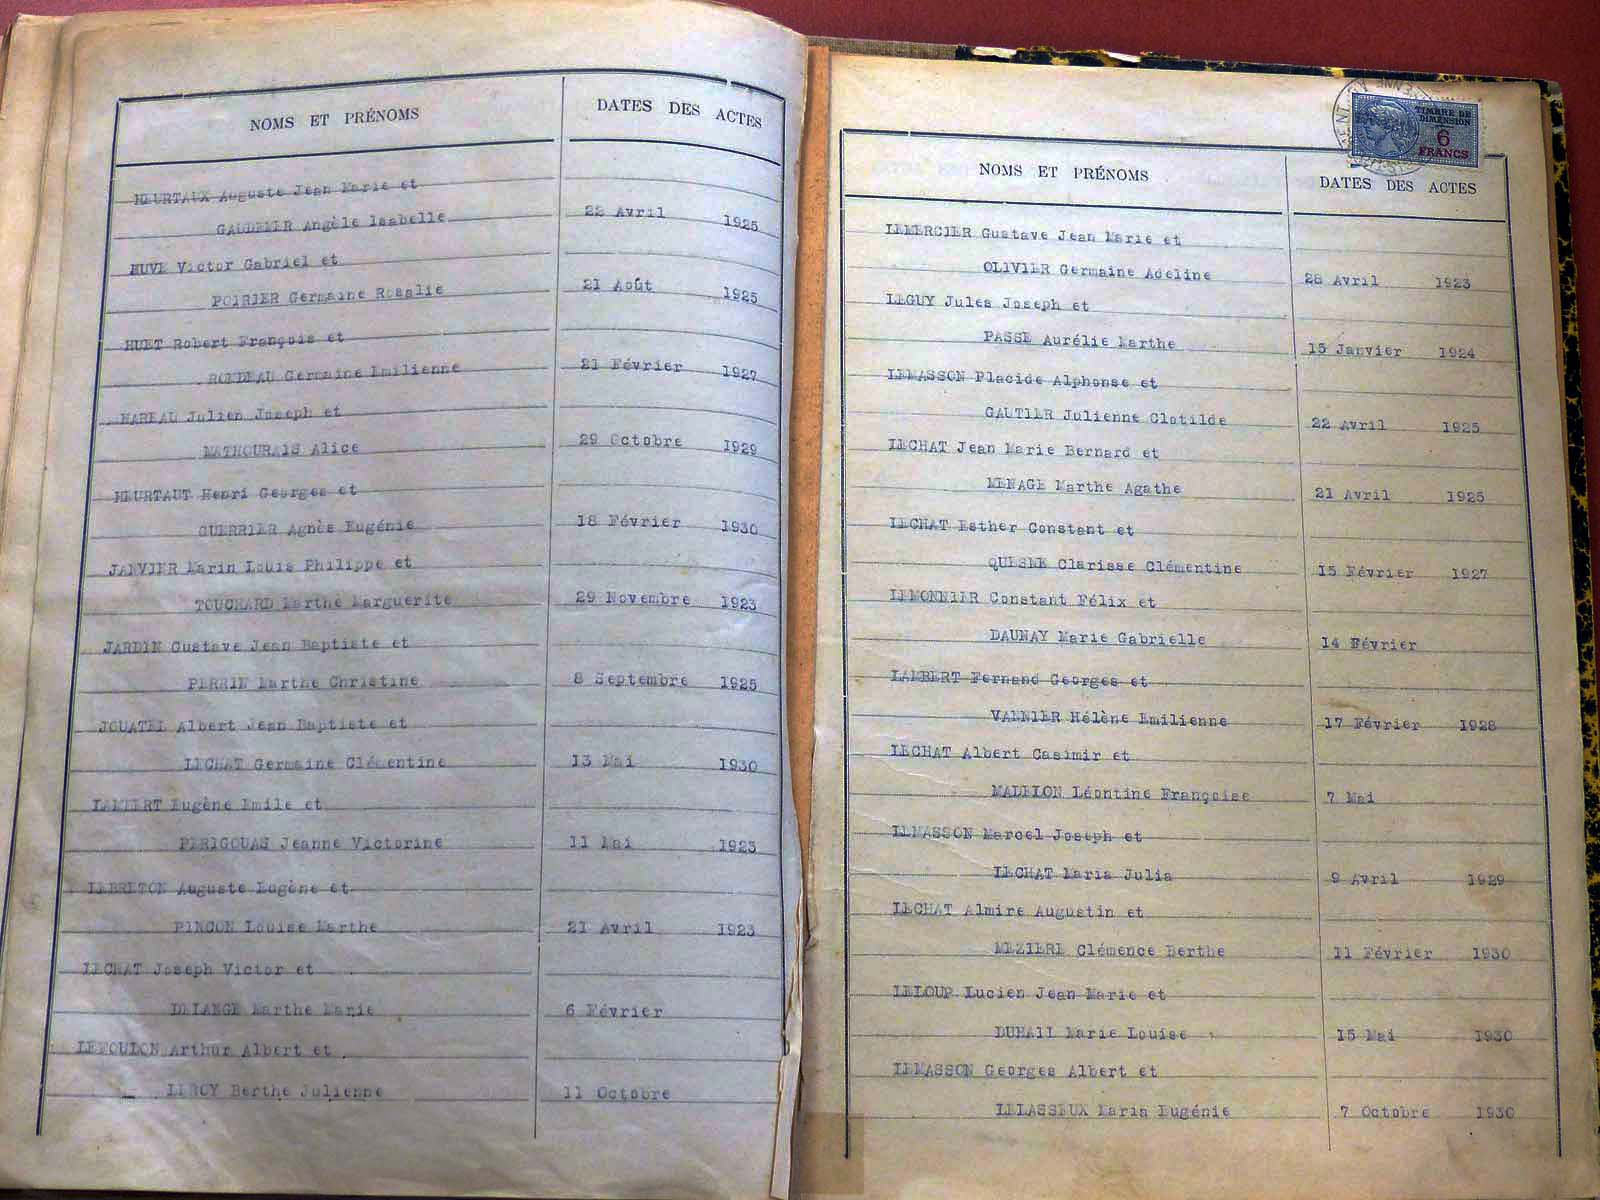 NOMS ET PRÉNOMS DATES DES ACTES
HEURTAUX Auguste Jean Marie et
GAUDEMER Angèle Isabelle 22 Avril 1925
HUVE Victor Gabriel et
POIRIER Germaine Rosalie 21 Août 1925
HUET Robert François et
RONDEAU Germaine Emilienne 21 Février 1927
HAREAU Julien Joseph et
MATHOURAIS Alice 29 Octobre 1929
HEURTAUT Henri Georges et
GUERRIER Agnès Eugénie 18 Février 1930
JANVIER Marin Louis Philippe et
TOUCHARD Marthe Marguerite 29 Novembre 1923
JARDIN Gustave Jean Baptiste et
PERRIN Marthe Christine 8 Septembre 1925
JOUATEL Albert Jean Baptiste et
LECHAT Germaine Clémentine 13 Mai 1930
LAMBERT Eugène Emile et
PERIGOUAS Jeanne Victorine 11 Mai 1923
LEBRETON Auguste Eugène et
PINCON Louise Marthe 21 Avril 1923
LECHAT Joseph Victor et
DELANGE Marthe Marie 6 Février
LEMOULON Arthur Albert et
LEROY Berthe Julienne 11 Octobre
TIMBRE DE
DIMENSION
6
FRANCS
NOMS ET PRÉNOMS DATES DES ACTES
LEMERCIER Gustave Jean Marie et
OLIVIER Germaine Adeline 28 Avril 1923
LEGUY Jules Joseph et
PASSE Aurélie Marthe 15 Janvier 1924
LEMASSON Placide Alphonse et
GAUTIER Julienne Clotilde 22 Avril 1925
LECHAT Jean Marie Bernard et
MENAGE Marthe Agathe 21 Avril 1925
LECHAT Esther Constant et
QUESNE Clarisse Clémentine 15 Février 1927
LEMONNIER Constant Félix et
DAUNAY Marie Gabrielle 14 Février
LAMBERT Fernand Georges et
VANNIER Hélène Emilienne 17 Février 1928
LECHAT Albert Casimir et
MADELON Léontine Françoise 7 Mai
LEMASSON Marcel Joseph et
LECHAT Maria Julia 9 Avril 1929
LECHAT Almire Augustin et
MEZIERE Clémence Berthe 11 Février 1930
LELOUP Lucien Jean Marie et
DUHAIL Marie Louise 15 Mai 1930
LEMASSON Georges Albert et
LELASSEUX Maria Eugénie 7 Octobre 1930